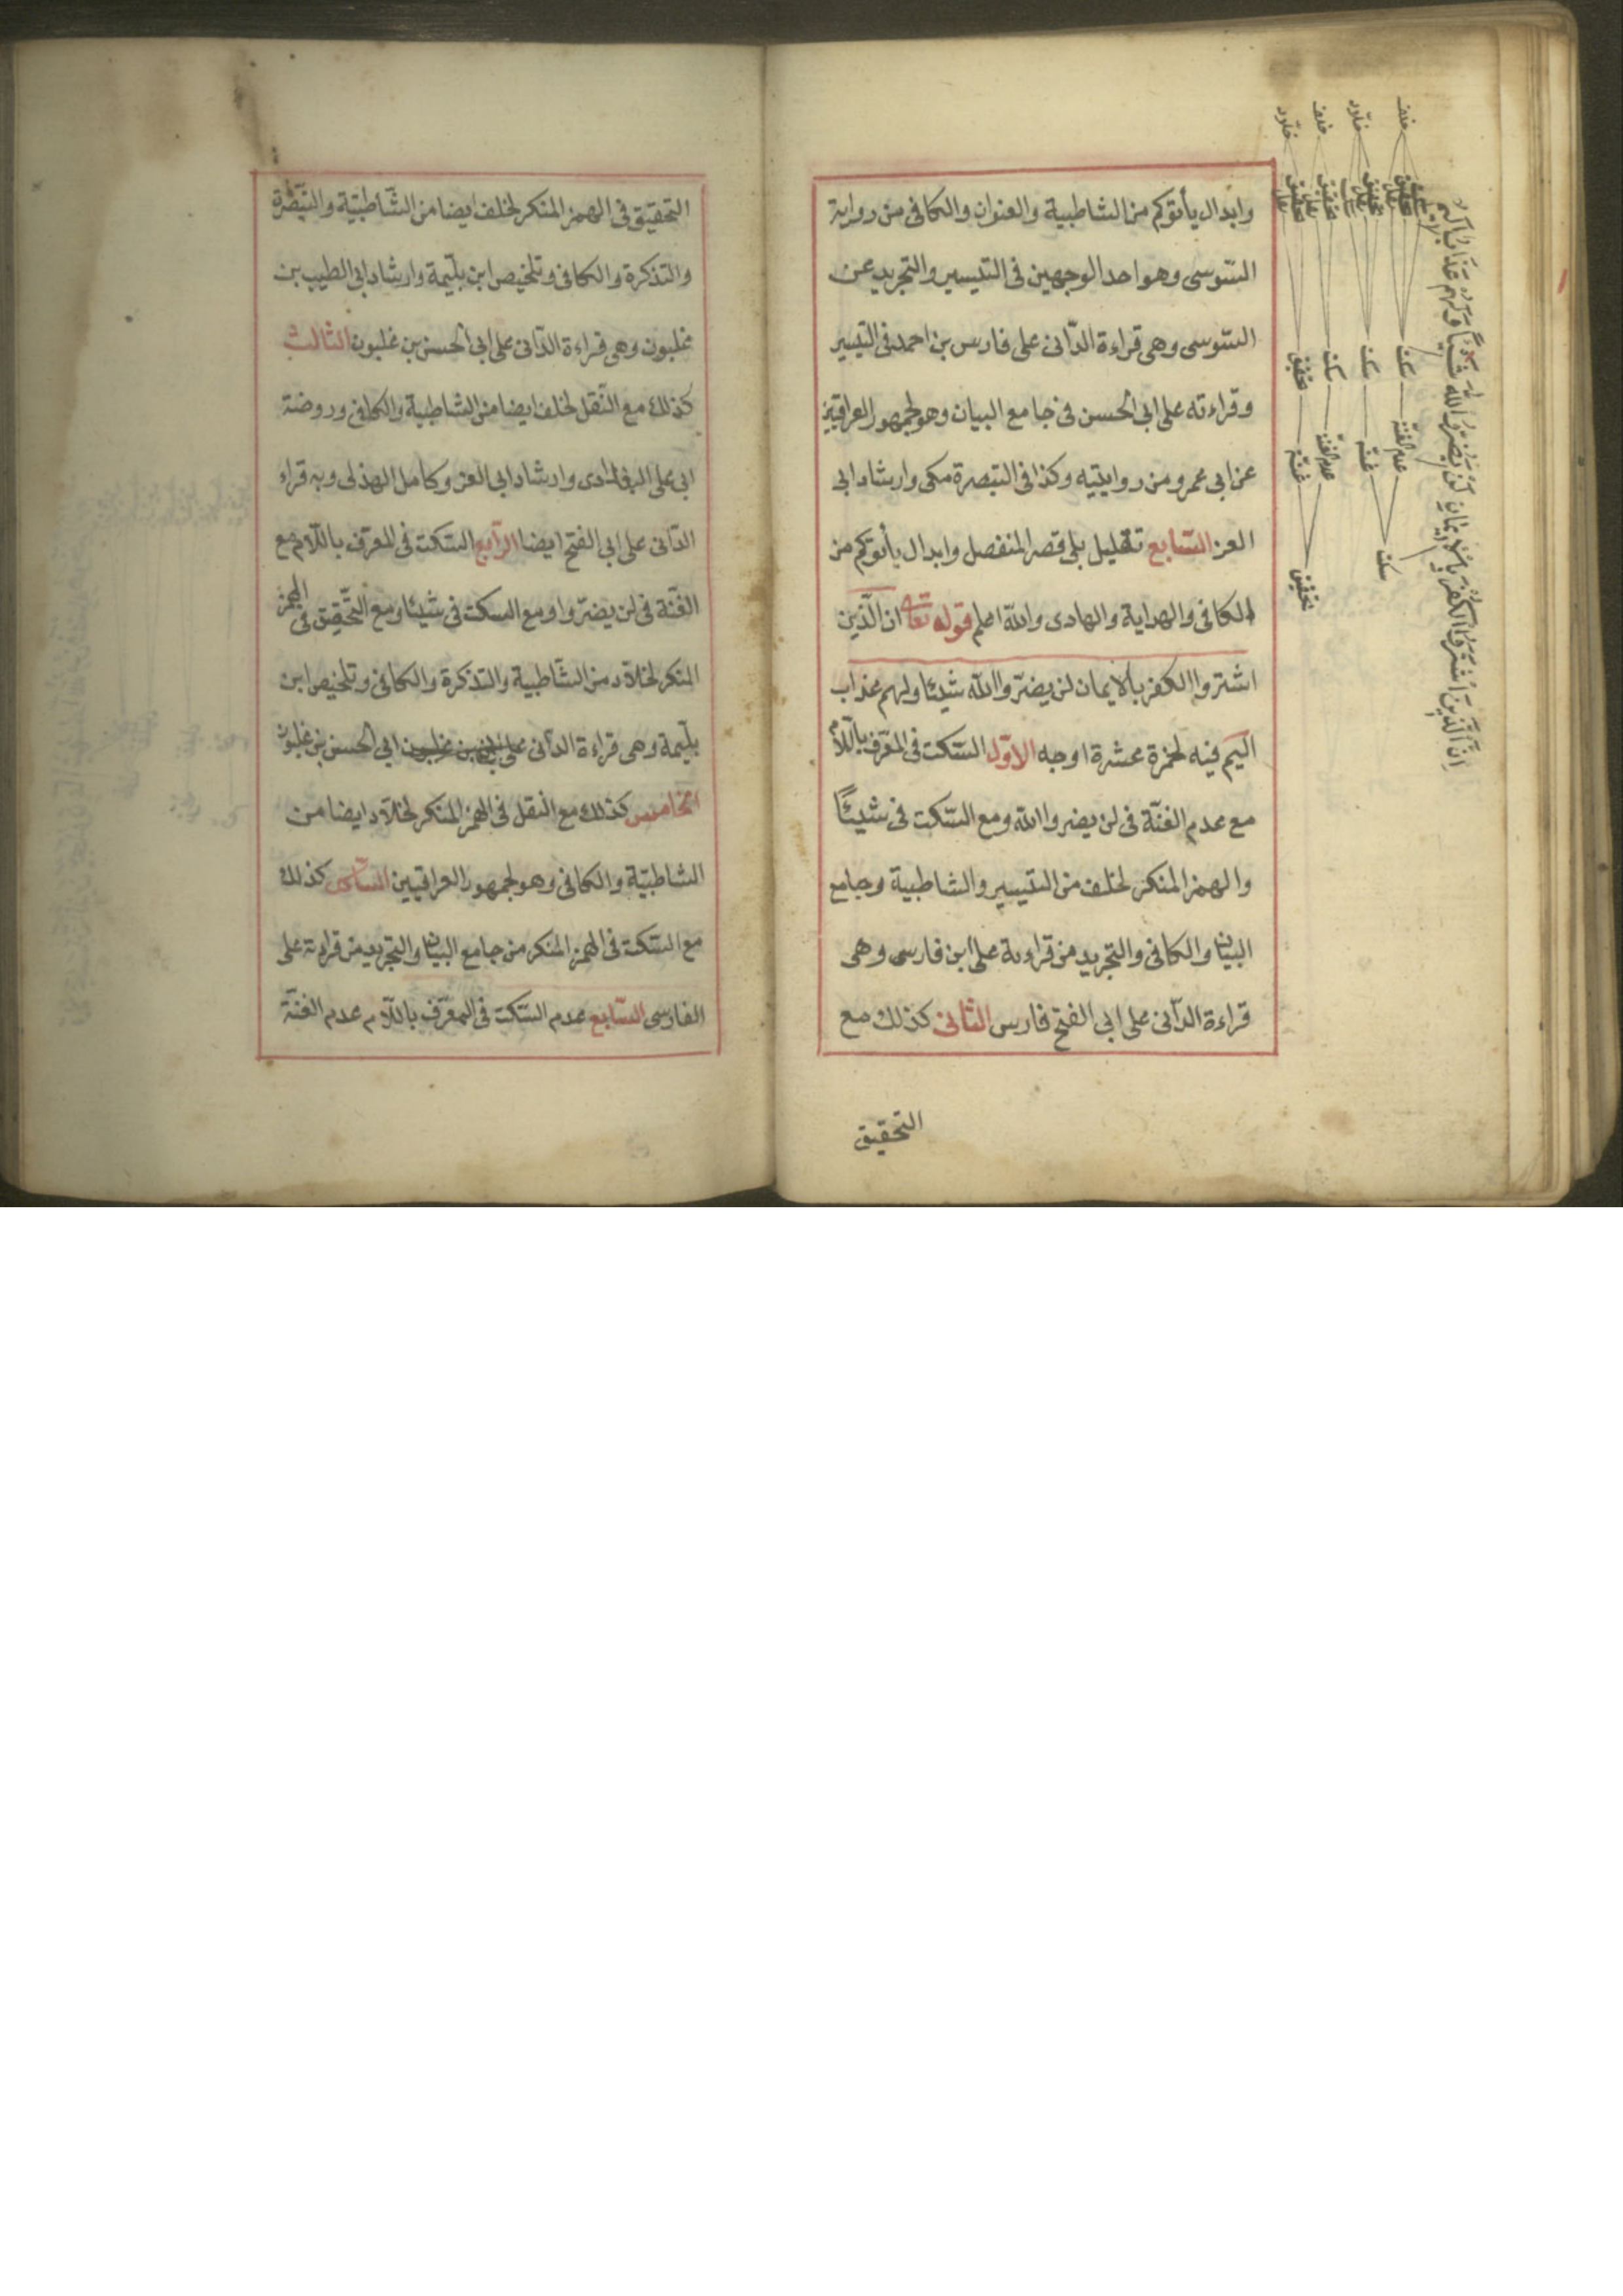 وابدال يأتوكم من الشاطبية والعنوان والكافى من رواية
السّوسى وهو احد الوجهين فى التيسير والتجريد عن
السّوسى وهى قراءة الدّانى على فارس بن احمد فى التيسير
وقراءته على ابى الحسن فى جامع البيان وهو لجمهور العراقيين
عن ابى عمرو من روايتيه وكذا فى التبصرة مكى وارشاد ابى
العز السّابع تقليل بلى قصر المنفصل وابدال يأتوكم من
الكافى والهداية والهادى والله اعلم قوله تعالى ان الّذين
اشتروا الكفر بالايمان لن يضرّوا الله شيئا ولهم عذاب
اليم فيه لحمزة عشرة اوجه الاوّل السّكت فى المعرّف باللّام
مع عدم الغنّة فى لن يضروا الله ومع السّكت فى شيئًا
والهمز المنكر لخلف من التيسير والشاطبية وجامع
البيان والكافى والتجريد من قراءة على ابن فارسى وهى
قراءة الدّانى على ابى الفتح فارس الثانى كذلك مع
التحقيق
اِنَّ الَّذِينَ اشْتَرَوُا الْكُفْرَ بِالْاِيمَانِ لَنْ يَضُرُّوا اللهَ شَيْئًا وَلَهُمْ عَذَابٌ اَلِيمٌ
خلف خلّاد خلف خلّاد
سكت سكت سكت تحقيق
عدم الغنّة غنّة عدم الغنّة غنّة
سكت تحقيق
التحقيق فى الهمز المنكر لخلف ايضا من الشّاطبيّة والتّبصرة
والتذكرة والكافى وتلخيص ابن بلّيمة وارشاد ابى الطيب بن
غلبون وهى قراءة الدّانى على ابى الحسن بن غلبون الثالث
كذلك مع النّقل لخلف ايضا من الشاطبية والكافى وروضة
ابى على البغدادى وارشاد ابى العز وكامل الهذلى وبه قراء
الدّانى على ابى الفتح ايضا الرّابع السّكت فى المعرّف باللّام مع
الغّنة فى لن يضرّوا ومع السكت فى شيئا ومع التّحقيق فى الهمز
المنكر لخلّاد من الشّاطبية والتذكرة والكافى وتلخيص ابن
بلّيمة وهى قراءة الدّانى على ابى الحسن بن غلبون
الخامس كذلك مع النقل فى الهمز المنكر لخلّاد ايضا من
الشاطبيّة والكافى وهو لجمهور العراقيين السّادس كذلك
مع السّكت فى الهمز المنكر من جامع البيان والتجريد من قراءته على
الفارسى السّابع عدم السّكت فى المعرّف باللّام عدم الغنّة